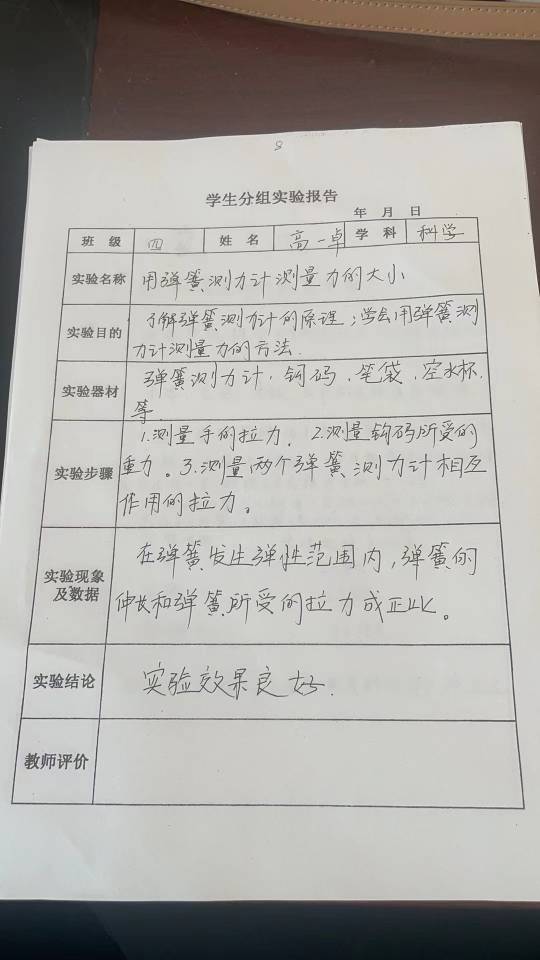 8
学生分组实验报告
年 月 日
班 级 四 姓 名 高一卓 学 科 科学
实验名称 用弹簧测力计测量力的大小
实验目的 了解弹簧测力计的原理；学会用弹簧测
力计测量力的方法.
实验器材 弹簧测力计、钩码、笔袋、空水杯.
等.
实验步骤 1.测量手的拉力. 2.测量钩码所受的
重力。3.测量两个弹簧测力计相互
作用的拉力。
实验现象
及数据
在弹簧发生弹性范围内，弹簧的
伸长和弹簧所受的拉力成正比。
实验结论 实验效果良好.
教师评价